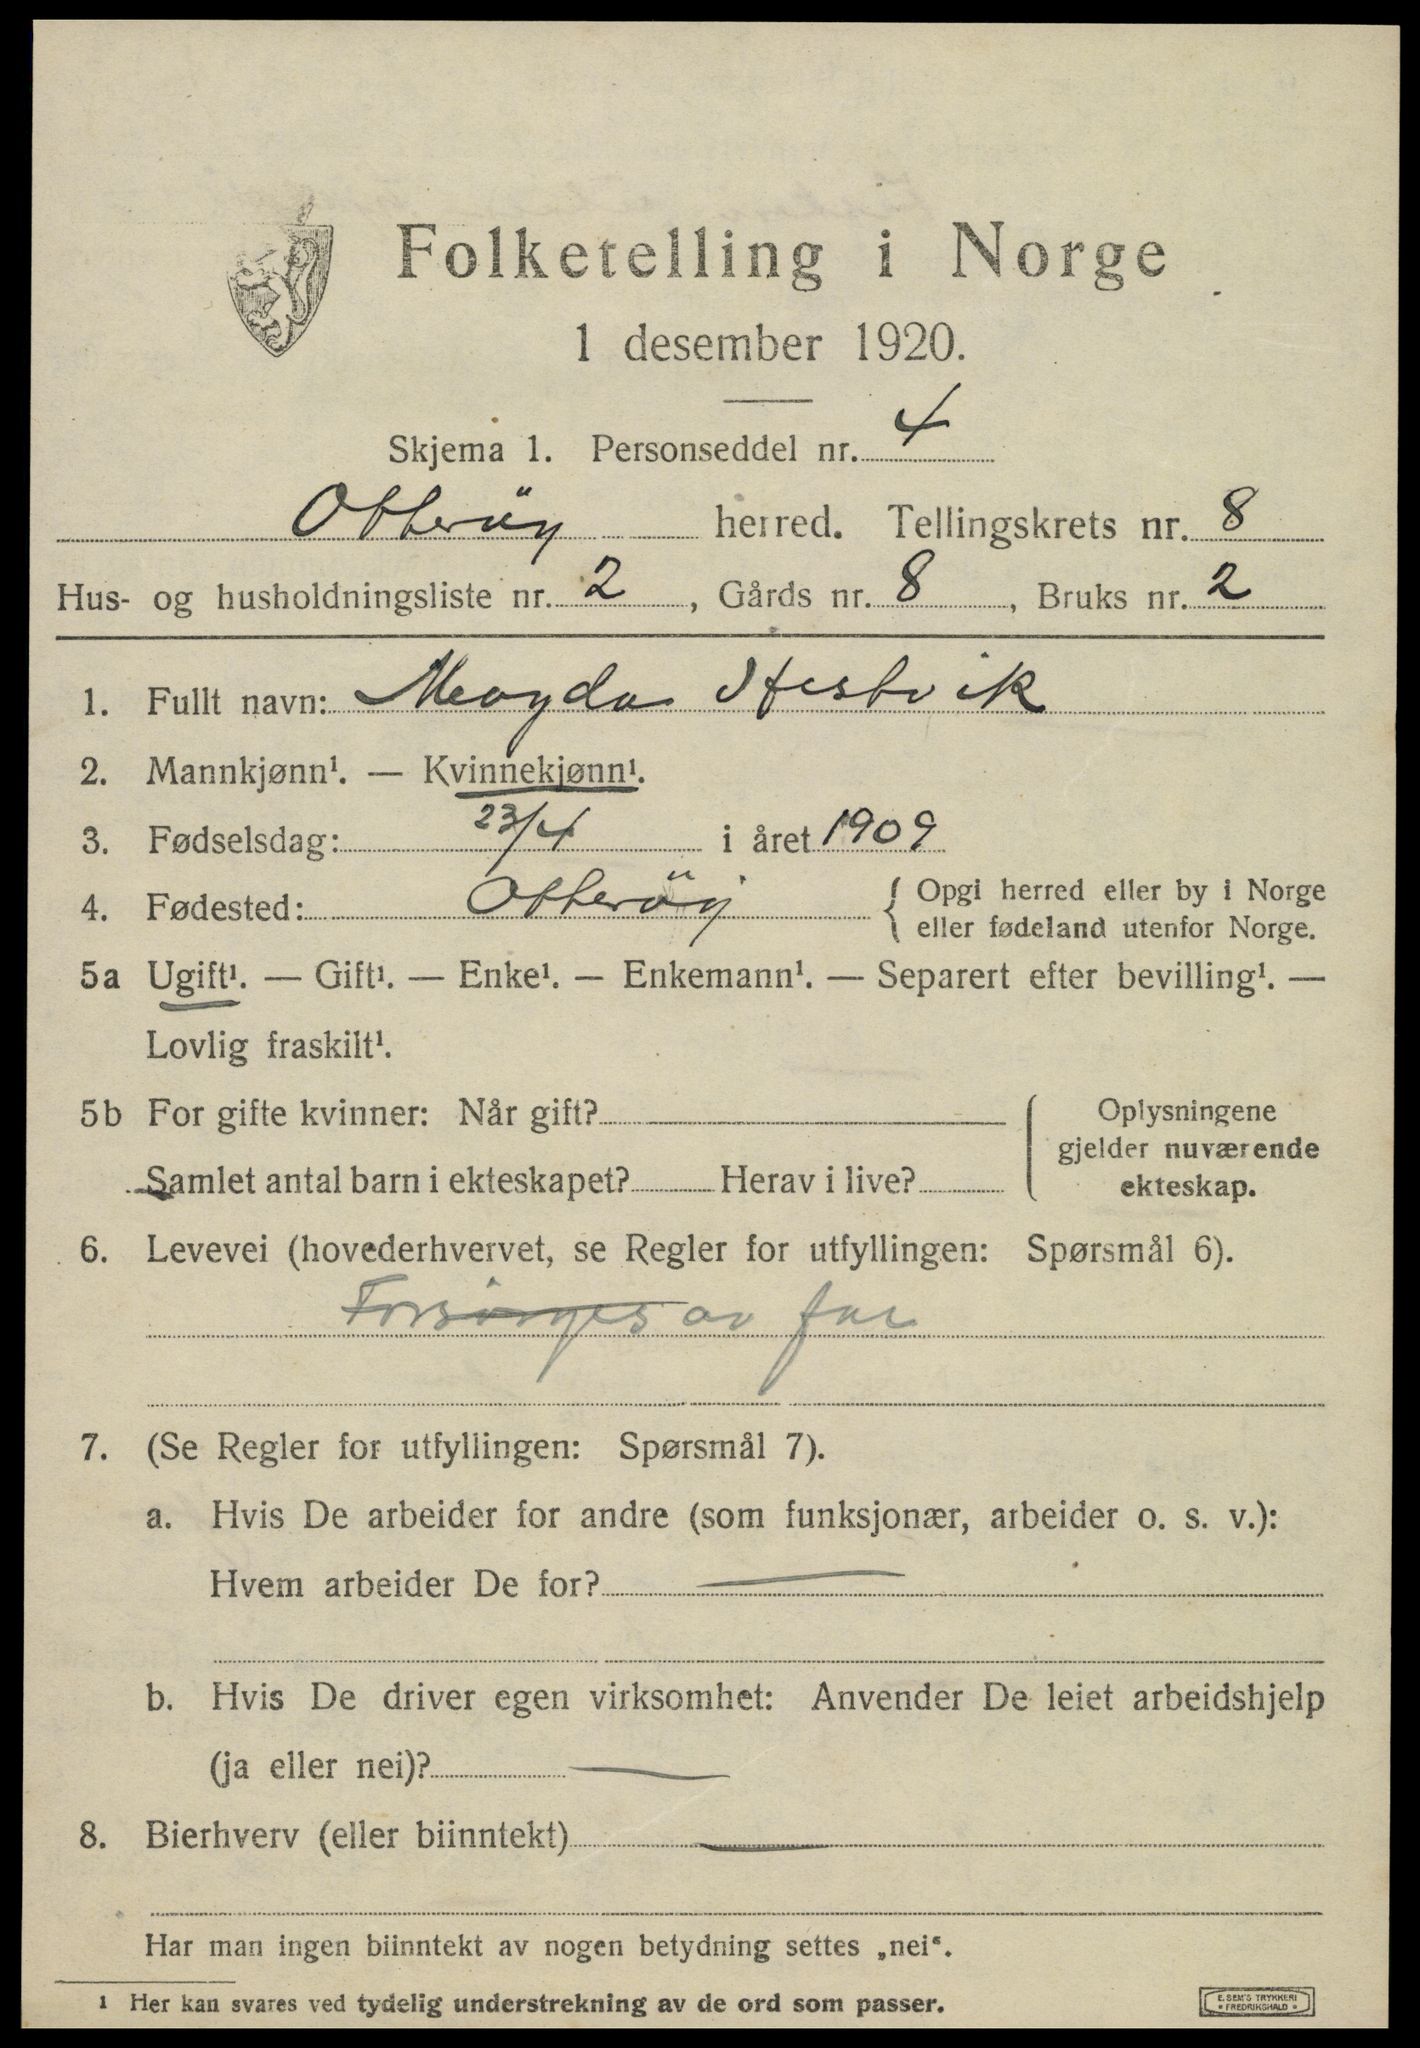 Folketelling i Norge
1 desember 1920.
Skjema 1. Personseddel nr. 4
Otteröy herred. Tellingskrets nr. 8
Hus- og husholdningsliste nr. 2, Gårds nr. 8, Bruks nr. 2
1. Fullt navn: Magda Hestvik
2. Mannkjønn¹. — Kvinnekjønn¹.
3. Fødselsdag: 23/4 i året 1909
4. Fødested: Otteröy { Opgi herred eller by i Norge
eller fødeland utenfor Norge.
5a Ugift¹. — Gift¹. — Enke¹. — Enkemann¹. — Separert efter bevilling¹. —
Lovlig fraskilt¹.
5b For gifte kvinner: Når gift?
Samlet antal barn i ekteskapet? Herav i live?
Oplysningene
gjelder nuværende
ekteskap.
6. Levevei (hovederhvervet, se Regler for utfyllingen: Spørsmål 6).
Forsørges av far
7. (Se Regler for utfyllingen: Spørsmål 7).
a. Hvis De arbeider for andre (som funksjonær, arbeider o. s. v.):
Hvem arbeider De for? —
b. Hvis De driver egen virksomhet: Anvender De leiet arbeidshjelp
(ja eller nei)? —
8. Bierhverv (eller biinntekt) —
Har man ingen biinntekt av nogen betydning settes „nei“.
1 Her kan svares ved tydelig understrekning av de ord som passer.
E. SEM'S TRYKKERI
• FREDRIKSHALD •